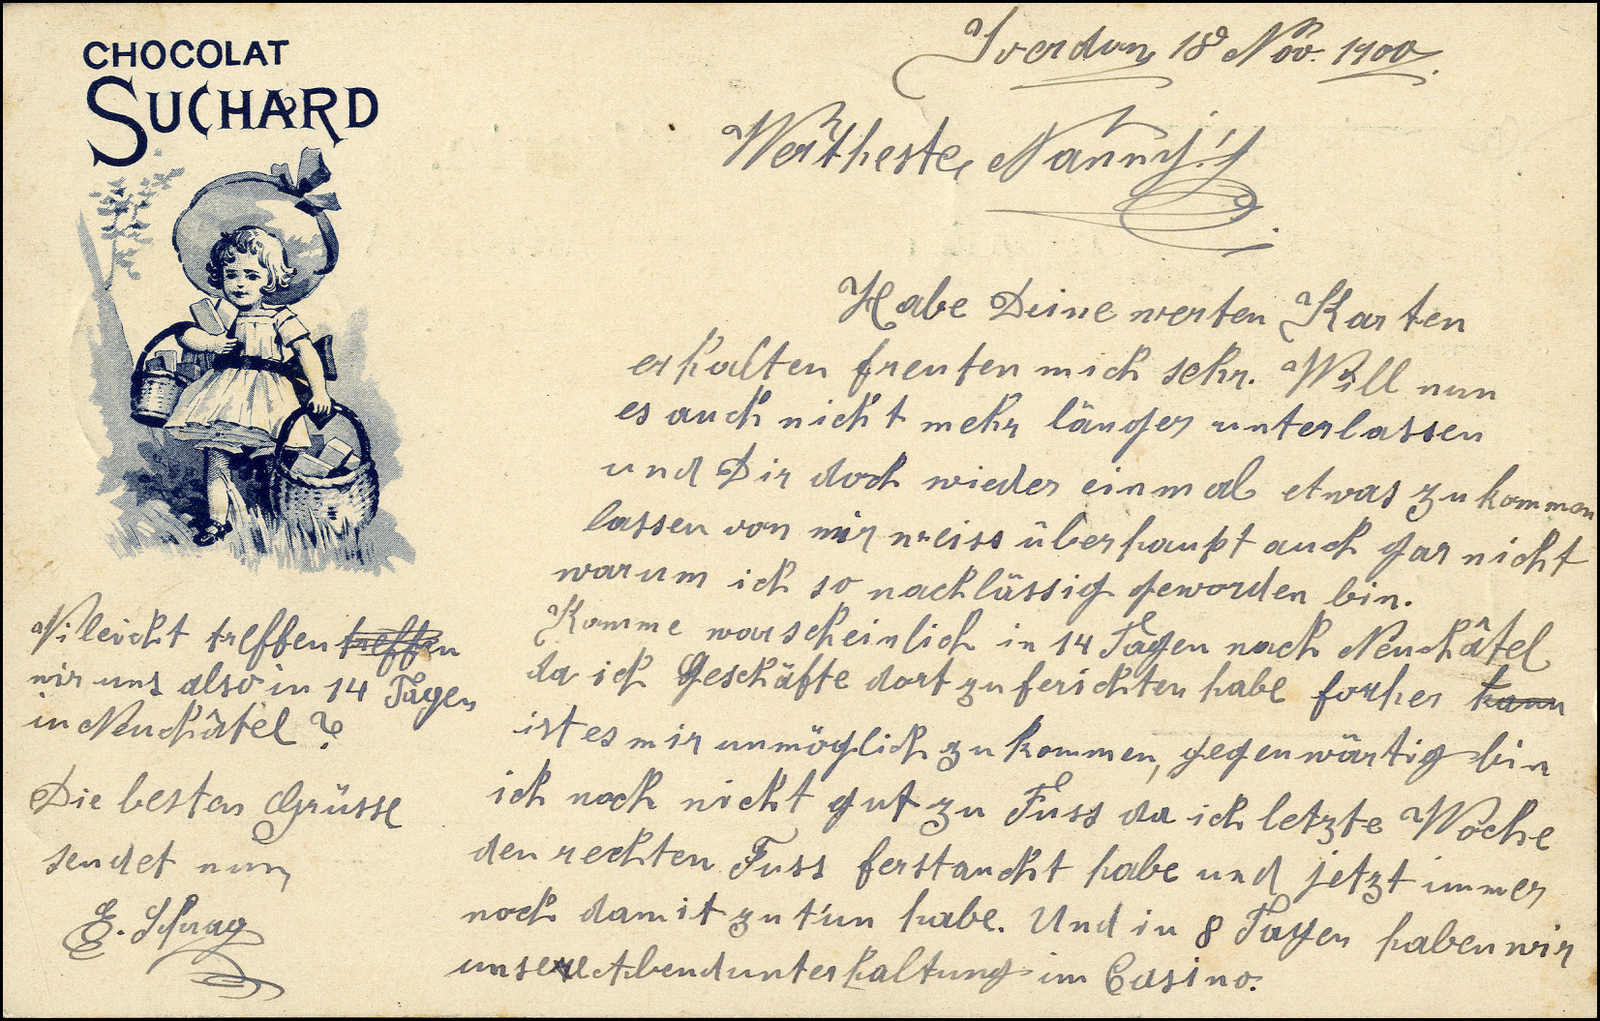 CHOCOLAT
SUCHARD
Yverdon, 18 Nov. 1900.
Wertheste Nanny!
Habe Deine werten Karten
erhalten freuten mich sehr. Will nun
es auch nicht mehr länger unterlassen
und Dir doch wieder einmal etwas zu kommen
lassen von mir weiss überhaupt auch gar nicht
warum ich so nachlässig geworden bin.
Komme warscheinlich in 14 Tagen nach Neuchâtel
da ich Geschäfte dort zu ferichten habe forher kann
ist es mir unmöglich zu kommen, gegenwärtig bin
ich noch nicht gut zu Fuss da ich letzte Woche
den rechten Fuss ferstaucht habe und jetzt immer
noch damit zu t'un habe. Und in 8 Tagen haben wir
unsere Abendunterhaltung im Casino.
Vileicht treffen treffen
wir uns also in 14 Tagen
in Neuchâtel?
Die besten Grüsse
sendet nun
E. Schnag